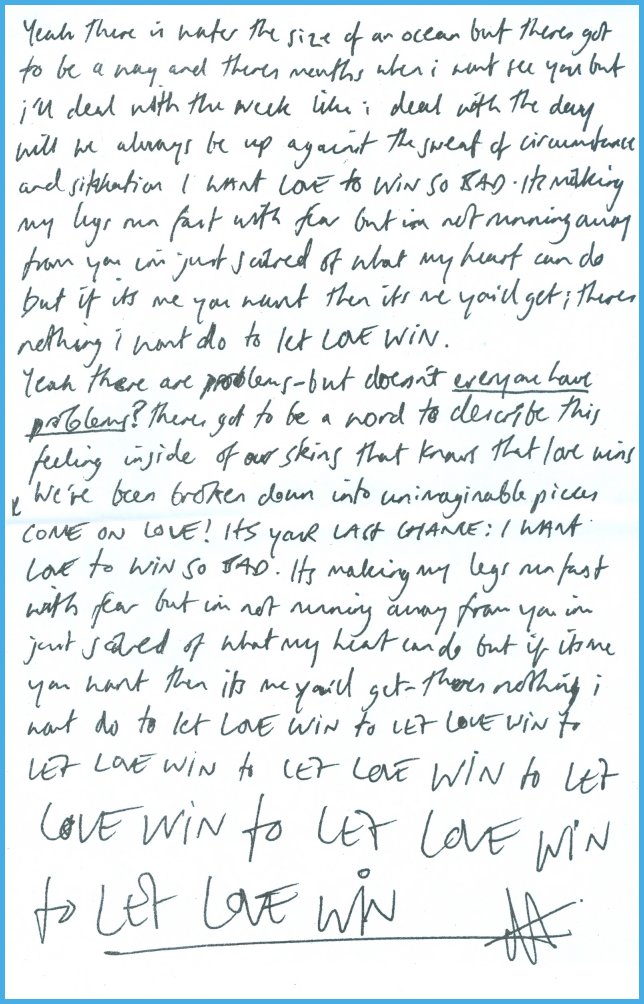 Yeah there is water the size of an ocean but theres got
to be a way and theres months when i wont see you but
i'll deal with the week like i deal with the day
will we always be up against the sweat of circumstance
and sitution I WANT LOVE to WIN SO BAD. Its making
my legs run fast with fear but im not running away
from you im just scared of what my heart can do
but if its me you want then its me you'll get; theres
nothing i wont do to let LOVE WIN.
Yeah there are problems-but doesn't everyone have
problems? Theres got to be a word to describe this
feeling inside of our skins that knows that love wins
We've been broken down into unimaginable pieces
COME ON LOVE! ITS YOUR LAST CHANCE: I WANT
LOVE to WIN SO BAD. Its making my legs run fast
with fear but im not running away from you im
just scared of what my heart can do but if its me
you want then its me you'll get-theres nothing i
wont do to let LOVE WIN to LET LOVE WIN to
LET LOVE WIN to LET LOVE WIN to LET
LOVE WIN to LET LOVE WIN
to LET LOVE WIN